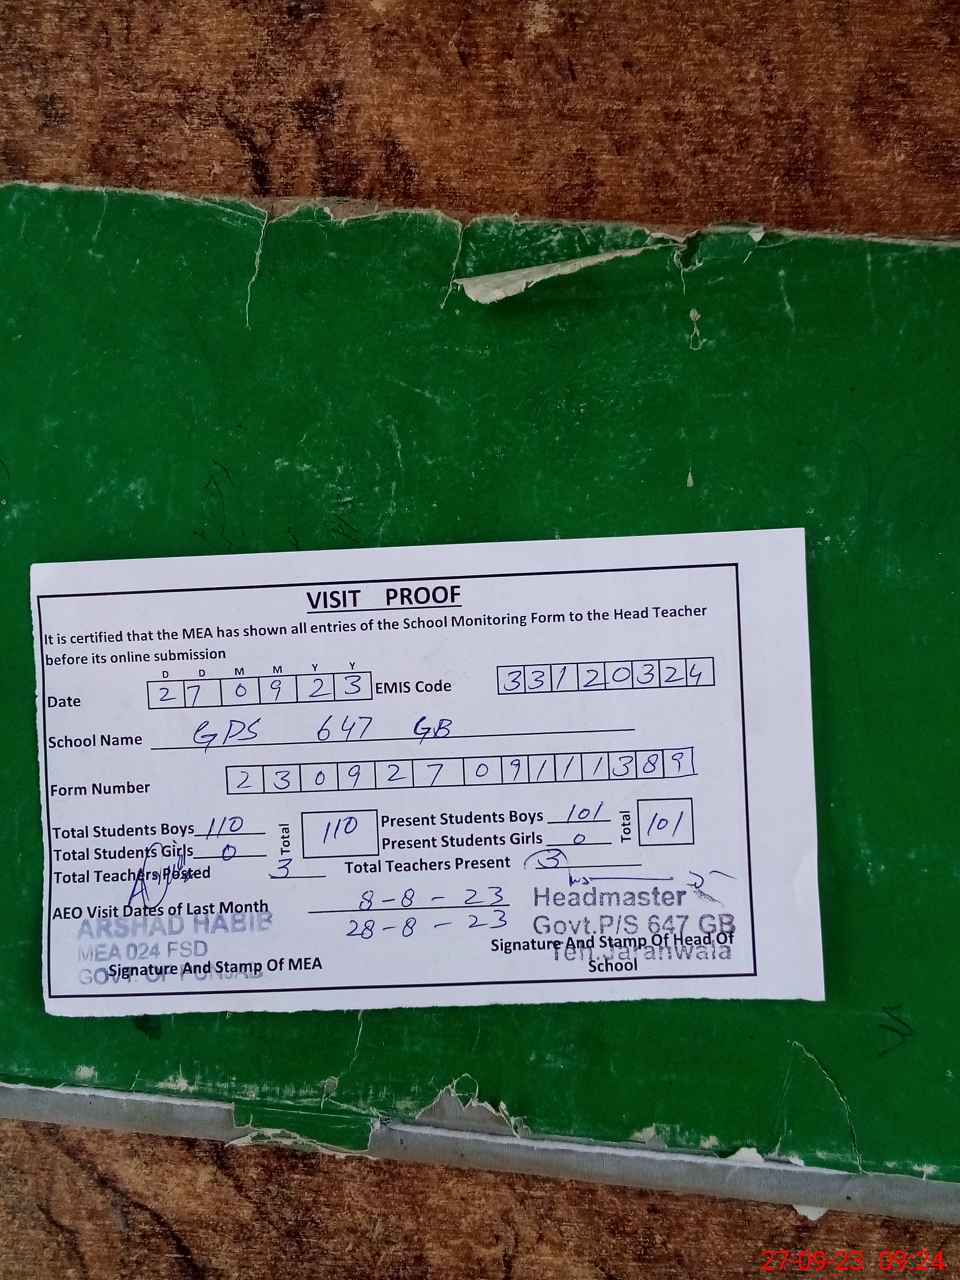 VISIT PROOF
It is certified that the MEA has shown all entries of the School Monitoring Form to the Head Teacher
before its online submission
D D M M Y Y
Date 2 7 0 9 2 3 EMIS Code 3 3 1 2 0 3 2 4
School Name GPS 647 GB
Form Number 2 3 0 9 2 7 0 9 1 1 1 3 8 9
Total Students Boys 110 Total 110 Present Students Boys 101 Total 101
Total Students Girls 0 Present Students Girls 0
Total Teachers Posted 3 Total Teachers Present 3
AEO Visit Dates of Last Month 8-8-23
28-8-23
ARSHAD HABIB
MEA 024 FSD
GOVT. OF PUNJAB
Signature And Stamp Of MEA
Headmaster
Govt.P/S 647 GB
Teh.Jaranwala
Signature And Stamp Of Head Of
School
27-09-23 09:24